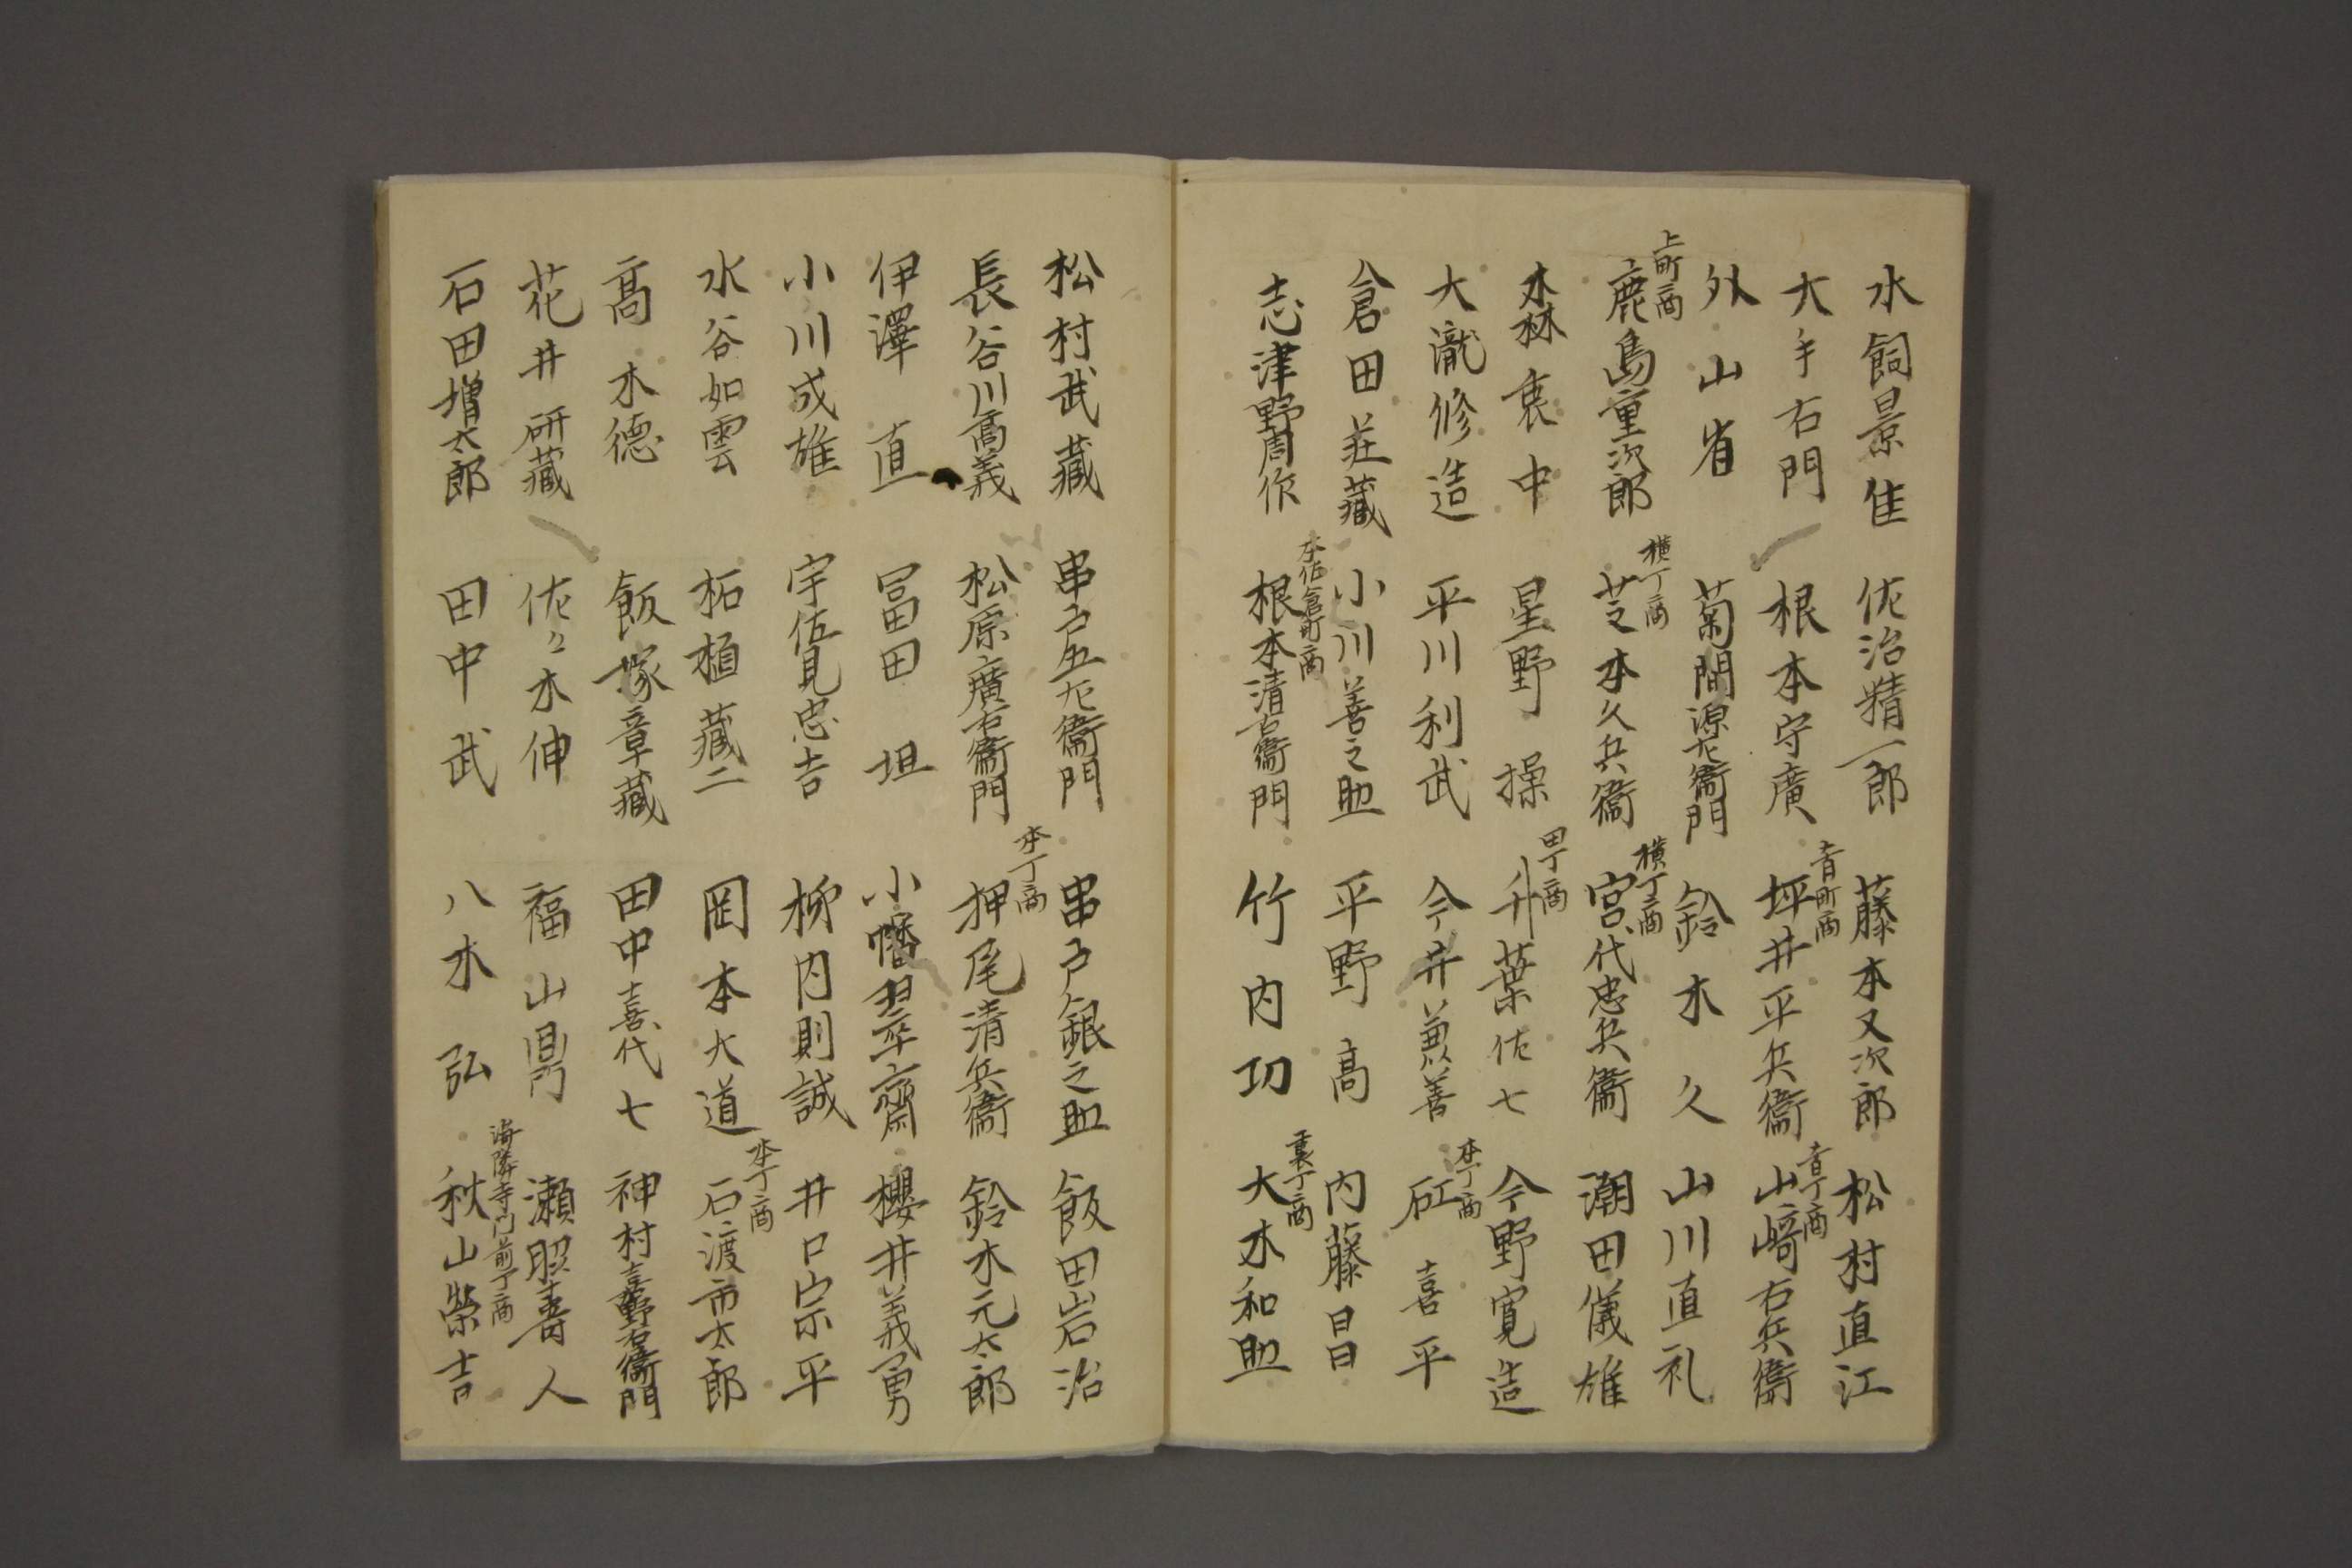 水飼景隹　佐治精一郎　藤本又次郎　松村直江
大手右門　根本守廣　坪井平兵衞　山﨑右兵衞
外山省　菊間源左衞門　鈴木久　山川直礼
上町商　鹿島重次郎　横丁商　芝本久兵衞　横丁商　宮代忠兵衞　潮田儀雄
森衷中　星野操　田丁商　升葉佐七　今野寛造
大瀧修造　平川利武　今井兼善　本丁商　喜平
倉田荘藏　小川善之助　平野高　内藤昌
志津野周作　本佐倉町商　根本清右衞門　竹内功　裏丁商　大木和助
松村武藏　串戸五左衞門　串戸銀之助　飯田岩治
長谷川高義　松原廣右衞門　本丁商　押尾清兵衞　鈴木元太郎
伊澤直　冨田坦　小幡翠齋　櫻井義勇
小川成雄　宇佐見忠吉　柳内則誠　井口宗平
水谷如雲　柘植藏二　岡本大道　本丁商　石渡市太郎
高木德　飯塚章藏　田中喜代七　神村喜野右衞門
花井研藏　佐々木伸　福山鼎　瀬沼壽人
石田増太郎　田中武　八木弘　海隣寺门前丁商　秋山榮吉